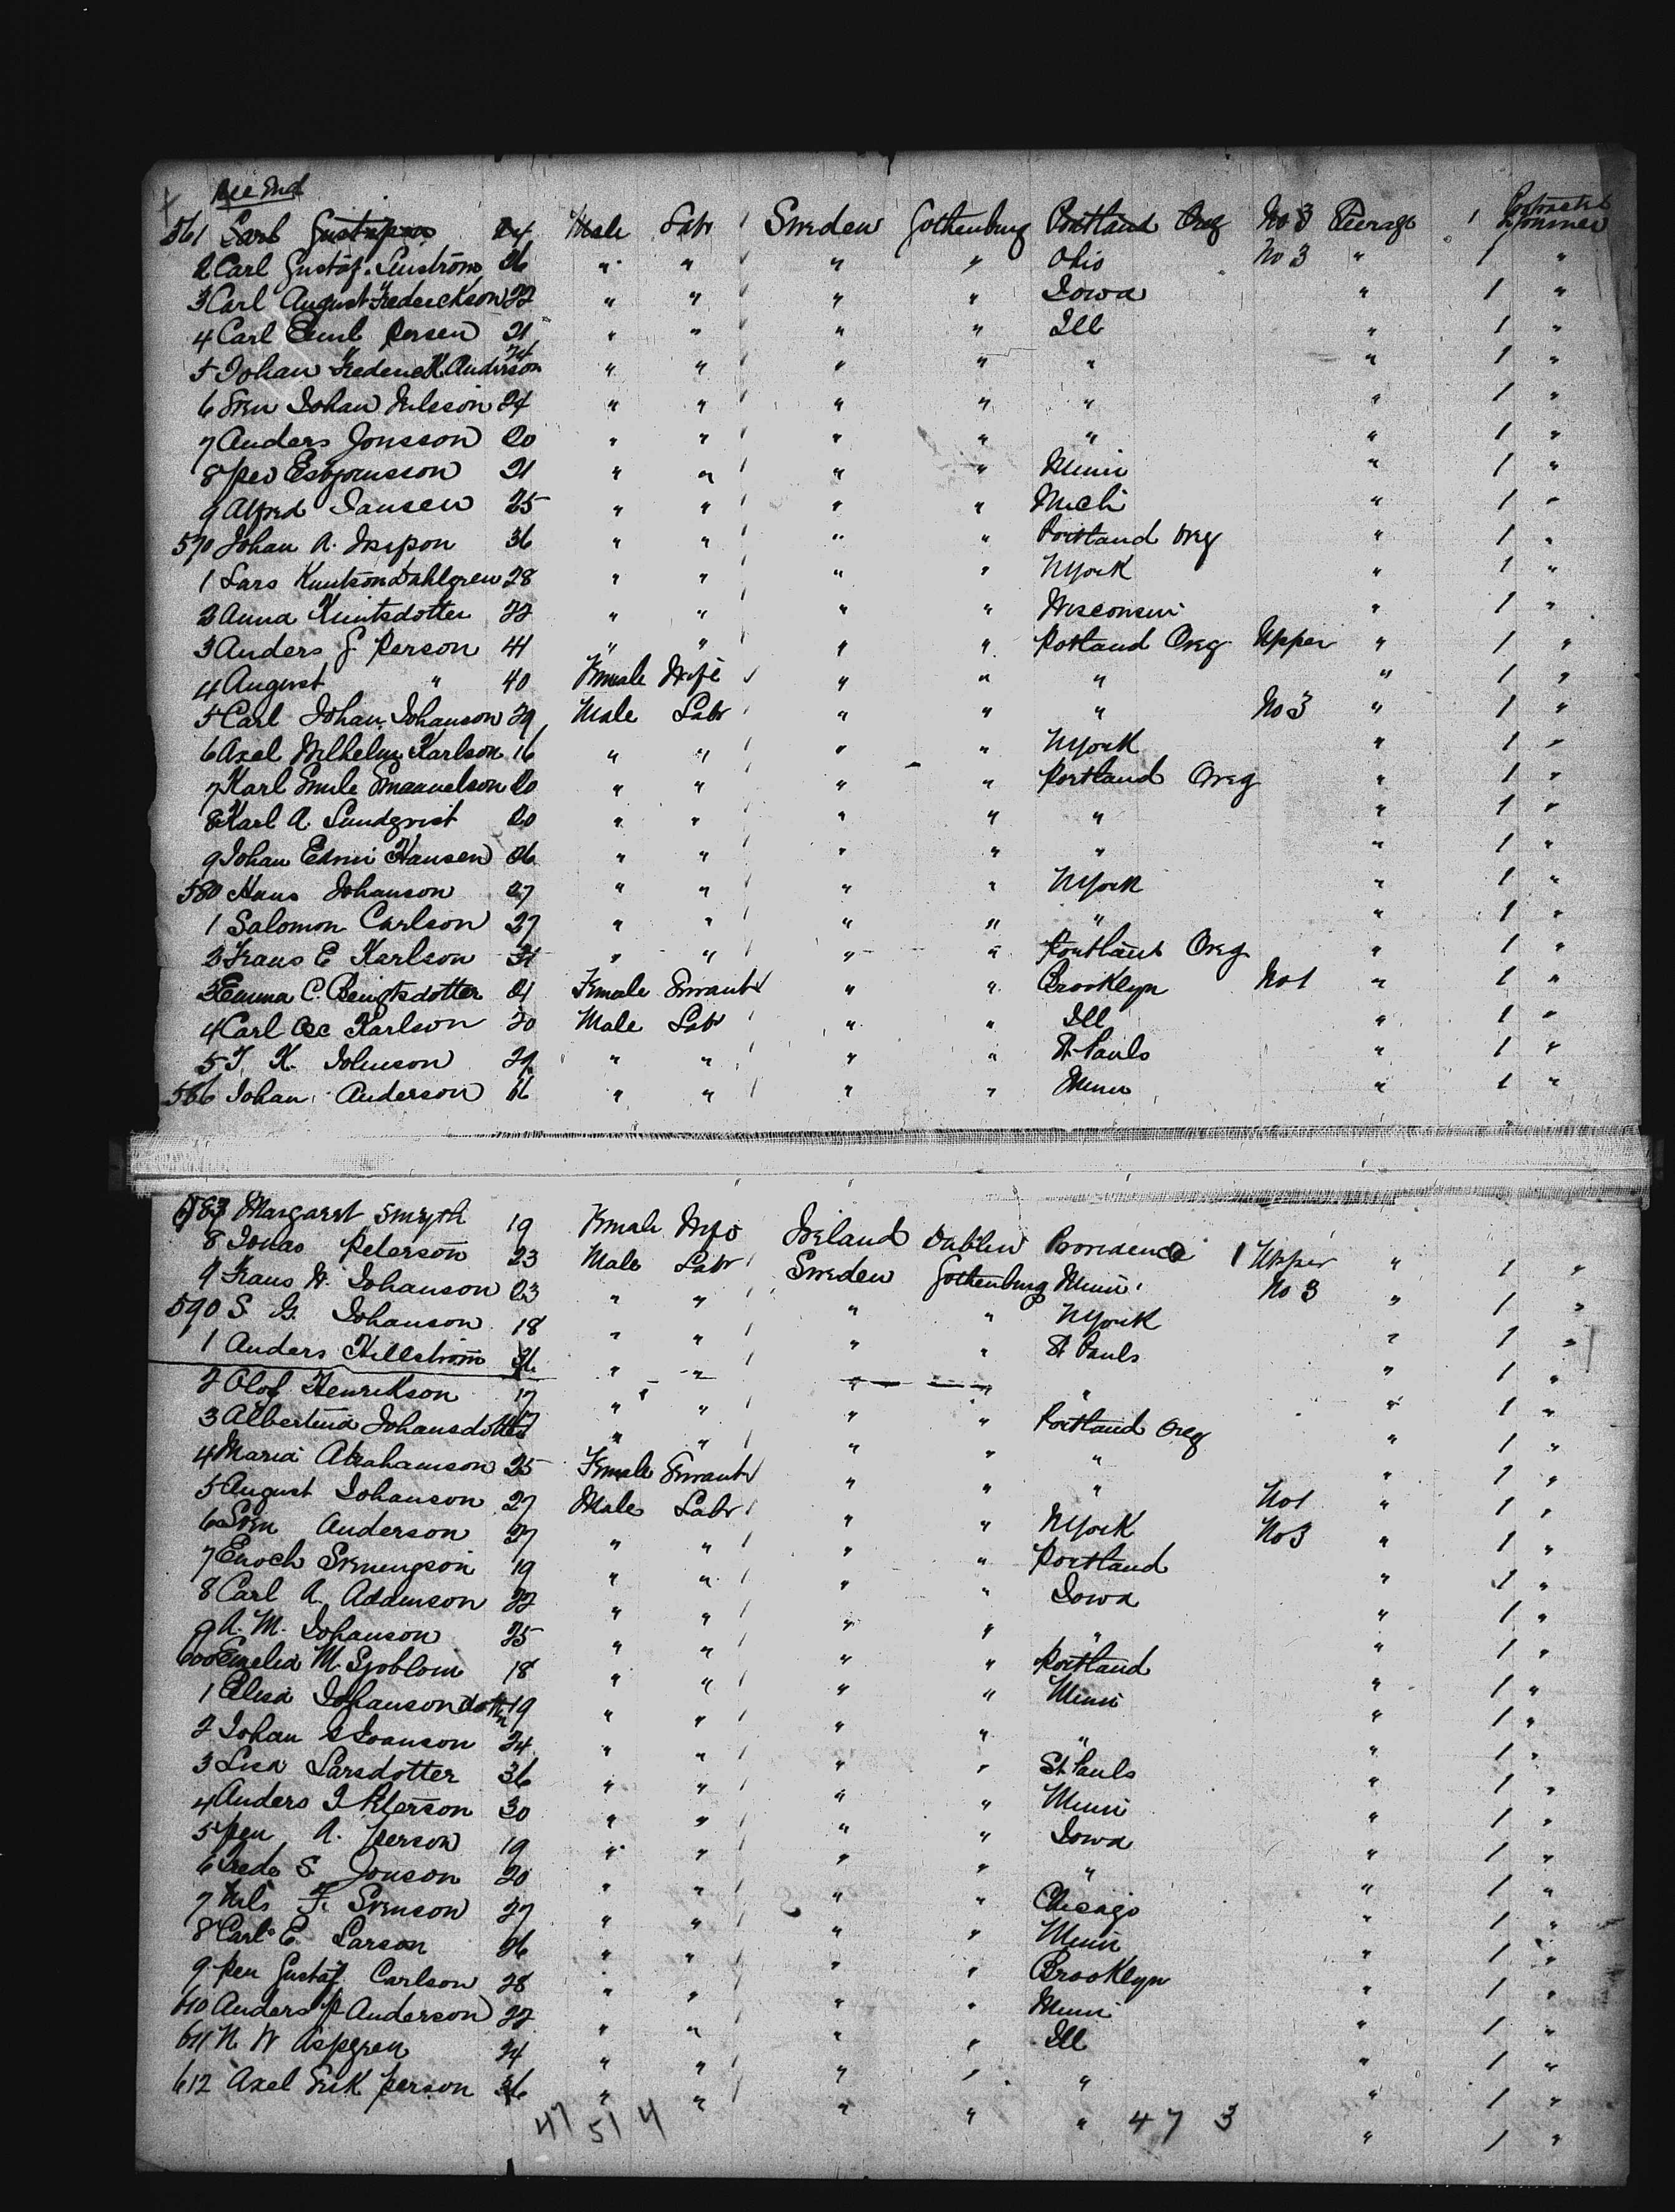 See End
561 Carl Gustafson 24 Male Labr / Sweden Gothenburg Portland Oreg No 3 Steerage 1 Protracted Sojourner
2 Carl Gustaf 26 " " / " " Ohio No 3 " 1 "
3 Carl August Frederickson 22 " " / " " Iowa " 1 "
4 Carl Emil Persen 21 " " / " " Ill " 1 "
5 Johan Frederick Anderson 24 " " / " " " " 1 "
6 Sven Johan Nilsson 24 " " / " " " " 1 "
7 Anders Jonsson 20 " " / " " " " 1 "
8 Per Esbjornsson 21 " " / " " Minn " 1 "
9 Alfred Jansen 25 " " / " " Mich " 1 "
570 Johan A. 36 " " / " " Portland Oreg " 1 "
1 Lars Knutson Dahlgren 28 " " / " " NYork " 1 "
2 Anna Knutsdotter 22 " " / " " Wisconsin " 1 "
3 Anders G Person 41 " " / " " Potland Oreg Upper " 1 "
4 August " 40 Female Wife / " " " " 1 "
5 Carl Johan Johanson 29 Male Labr / " " " No 3 " 1 "
6 Axel Wilhelm Karlson 16 " " / " " NYork " 1 "
7 Karl Emile Emanuelson 20 " " / " " Portland Oreg " 1 "
8 Karl A. Sundqvist 20 " " / " " " " 1 "
9 Johan Edvin Hansen 26 " " / " " " " 1 "
580 Hans Johanson 27 " " / " " NYork " 1 "
1 Salomon Carlson 27 " " / " " " " 1 "
2 Frans E Karlson 31 " " / " " Portland Oreg " 1 "
3 Emma C. Bengtsdotter 21 Female Servant / " " Brooklyn No 1 " 1 "
4 Carl Osc Karlson 20 Male Labr / " " Ill " 1 "
5 K. Johnson " " / " " St Pauls " 1 "
586 Johan Anderson 16 " " / " " Minn " 1 "
587 Margaret Smyth 19 Female Wife Ireland Dublin Providence 1 Upper " 1 "
8 Jonas Peterson 23 Male Labr / Sweden Gothenburg Minn No 3 " 1 "
9 Frans W. Johanson 23 " " / " " NYork " 1 "
590 S. G. Johanson 18 " " / " " St Pauls " 1 "
1 Anders Hillstrom 26 " " / " " " " 1 "
2 Olof Henrikson 17 " " / " " Portland Oreg " 1 "
3 Albertina Johansdotter 17 " " / " " " " 1 "
4 Maria Abrahamson 25 Female Servant / " " " No 1 " 1 "
5 August Johanson 27 Male Labr / " " NYork No 3 " 1 "
6 Sven Anderson 27 " " / " " Portland " 1 "
7 Enoch 19 " " / " " Iowa " 1 "
8 Carl A. 22 " " / " " " " 1 "
9 A. M. Johanson 25 " " / " " Portland " 1 "
600 Emelia M. Sjoblom 18 " " / " " Minn " 1 "
1 Elisa Johansondottr 19 " " / " " " " 1 "
2 Johan 24 " " / " " St Pauls " 1 "
3 Lisa Larsdotter 36 " " / " " Minn " 1 "
4 Anders J Peterson 30 " " / " " Iowa " 1 "
5 Per A. Person 19 " " / " " " " 1 "
6 S. Jonson 20 " " / " " Chicago " 1 "
7 Nils F. Svenson 27 " " / " " Minn " 1 "
8 Carl E. Larson 26 " " / " " Brooklyn " 1 "
9 Per Gustaf Carlson 28 " " / " " Minn " 1 "
610 Anders P Anderson 22 " " / " " Ill " 1 "
611 N. W Aspgren 24 " " / " " " " 1 "
612 Axel Erik Person 36 " " / " " " " 1 "
47 51 4 47 3